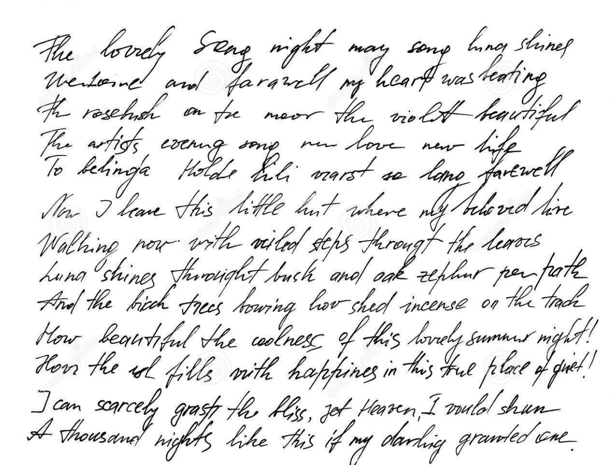 The lovely Song night may song luna shines
Welcome and farawell my heart was beating
Th rosebush on the moor the violett beautiful
The artists evening song new love new life
To belinda Holde Lili warst so long farewell
Now I leave this little hut where my beloved live
Walking now with veiled steps througt the leaves
Luna shines throught bush and oak zephur per path
And the birch trees bowing low shed incense on the track
How beautiful the coolness of this lovely summer night!
How the fills with happiness in this true place of quiet!
I can scarcely grasp the bliss, jet Heaven, I would shun
A thousand nights like this if my darling granted one.